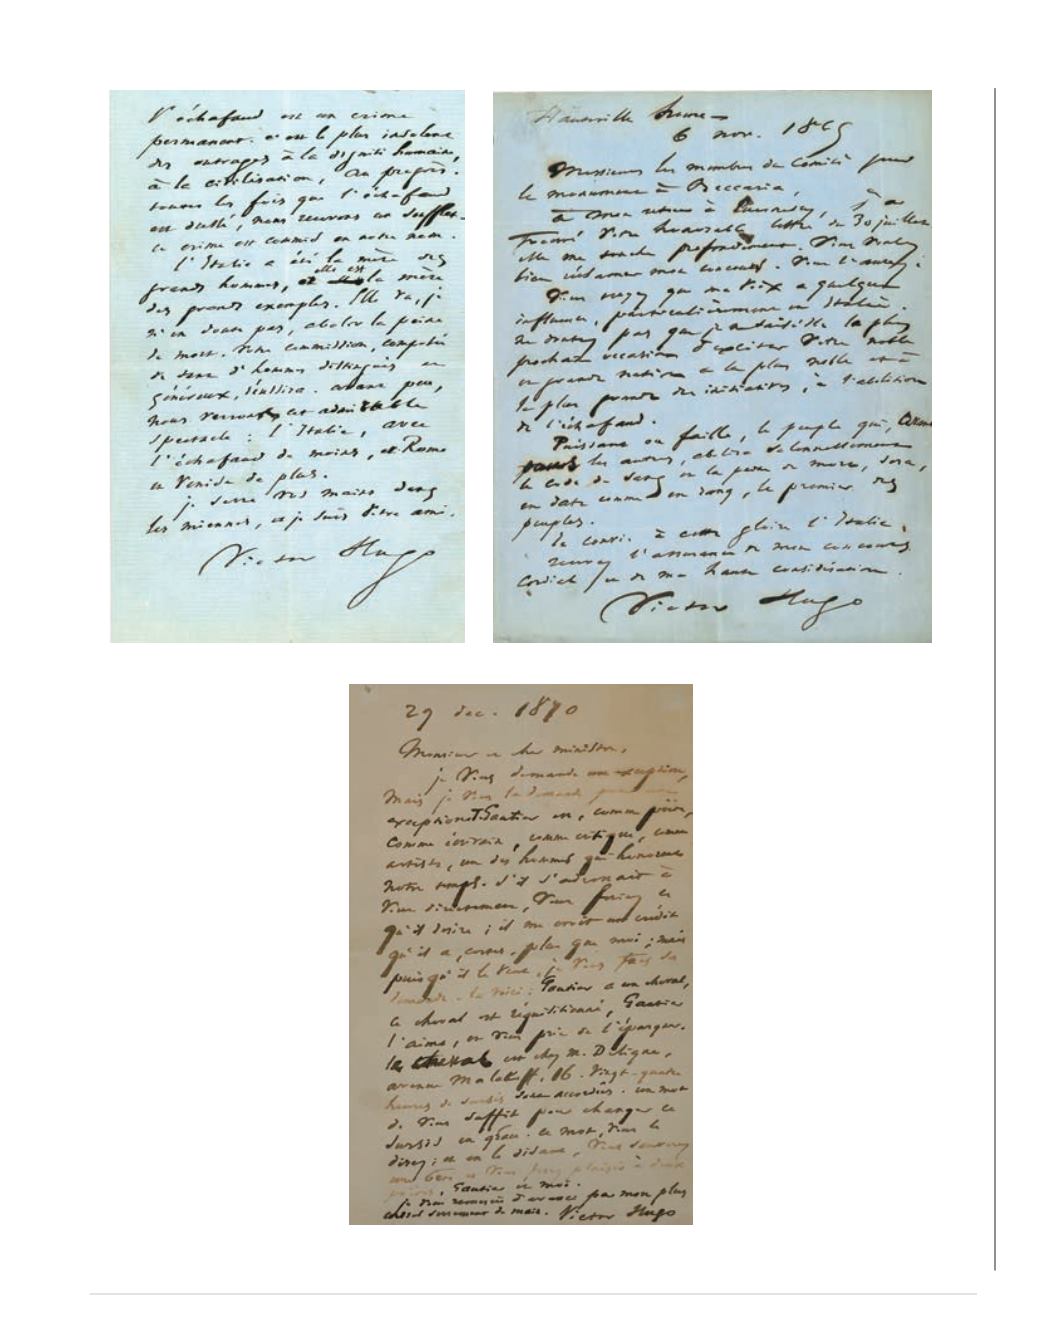 L'échafaud est un crime
permanent. c'est le plus insolent
des outrages à la dignité humaine,
à la civilisation, au progrès.
toutes les fois que l'échafaud
est dressé, nous recevons un soufflet.
ce crime est commis en notre nom.
l'Italie a été la mère des
grands hommes, elle est la mère
des grands exemples. Elle va, je
n'en doute pas, abolir la peine
de mort. Votre commission, composée
de tant d'hommes distingués et
généreux, réussira. avant peu,
nous verrons cet admirable
spectacle : l'Italie, avec
l'échafaud de moins, et Rome
et Venise de plus.
je serre vos mains dans
les miennes, et je suis votre ami.
Victor Hugo
Hauteville house
6 nov. 1865
Messieurs les membres du Comité pour
le monument à Beccaria,
à mon retour à Guernesey, j'ai
trouvé votre honorable lettre du 30 juillet
elle me touche profondément. Vous voulez
bien réclamer mon concours. Vous l'aurez.
Vous jugez que ma voix a quelque
influence, particulièrement en Italie.
ne doutez pas que je ne saisisse la plus
prochaine occasion d'exciter votre noble
et grande nation à la plus noble et à
la plus grande des initiatives, à l'abolition
de l'échafaud.
Puissant ou faible, le peuple qui, avant
tous les autres, abolira solennellement
le code de sang et la peine de mort, sera,
en date comme en rang, le premier des
peuples.
Je convie à cette gloire l'Italie.
recevez l'assurance de mon concours
cordial et de ma haute considération.
Victor Hugo
29 dec. 1870
Monsieur et cher ministre,
je vous demande une exception,
mais je vous la demande pour une
exception. T. Gautier est, comme poëte,
comme écrivain, comme critique, comme
artiste, un des hommes qui honorent
notre temps. S'il s'adressait à
vous directement, vous feriez ce
qu'il désire ; il me croit un crédit
qu'il a, certes, plus que moi ; mais
puisqu'il le veut, je vous fais sa
demande. la voici : Gautier a un cheval,
ce cheval est réquisitionné, Gautier
l'aime, et vous prie de l'épargner.
le cheval est chez M. Deligne,
avenue Malakoff, 16. Vingt-quatre
heures de sursis sont accordées. un mot
de vous suffit pour changer ce
sursis en grâce. ce mot, vous le
direz ; et en le disant, vous sauverez
une bête et vous ferez plaisir à deux
poëtes, Gautier et moi.
je vous remercie d'avance par mon plus
cordial serrement de main. Victor Hugo